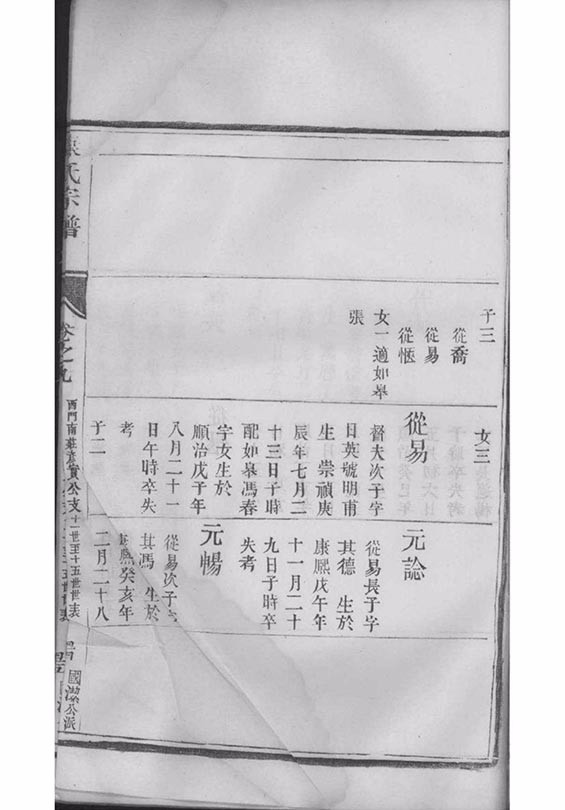 子三
從喬
從易
從愜
女一適如皋
張
女三
從易
督夫次子字
日英號明甫
生崇禎庚
辰年七月二
十三日子時
配如皋馮春
宇女生於
順治戊子年
八月二十一
日午時卒失
考
子二
元諗
從易長子字
其德 生於
康熙戊午年
十一月二十
九日子時卒
失考
元暢
從易次子字
其馮 生於
康熙癸亥年
二月二十八
氏宗譜
卷之九
西門南莊彥實公支十一世至十五世世表
國潔公派